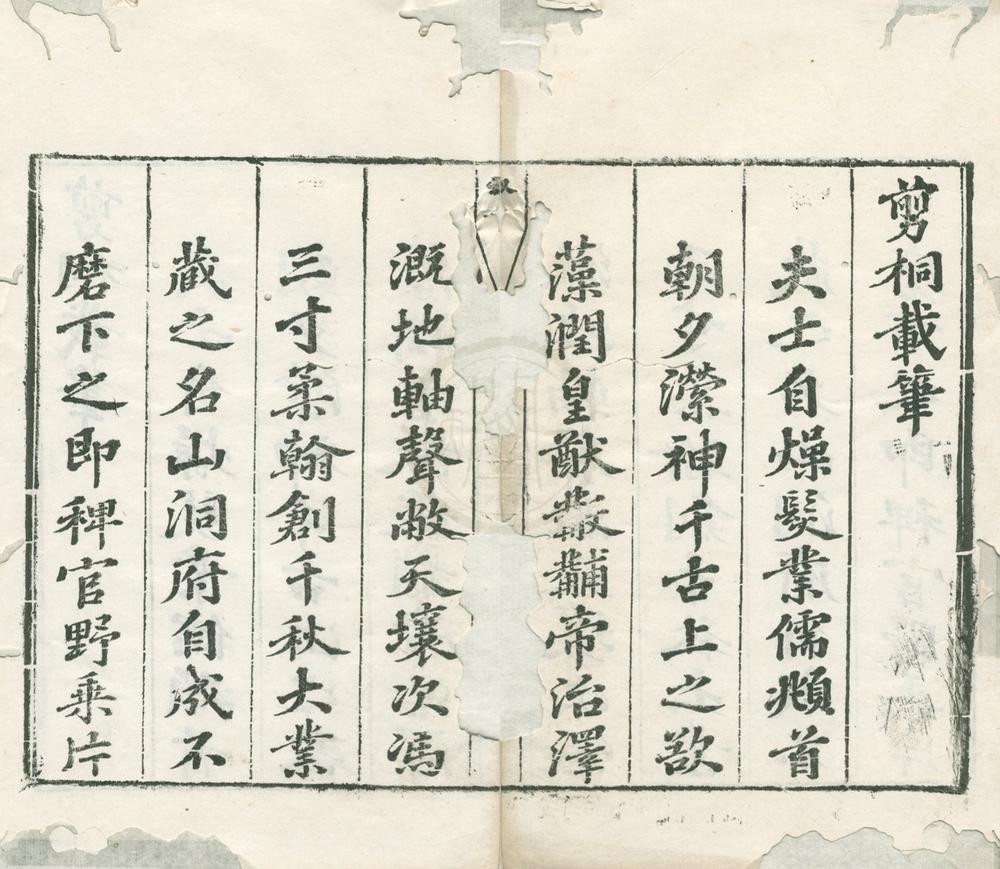 剪桐載筆
夫士自燥髮業儒頫首
朝夕濚神千古上之欲
藻潤皇猷黻黼帝治澤
溉地軸聲敝天壤次馮
三寸柔翰創千秋大業
藏之名山洞府自成不
磨下之即稗官野乘片